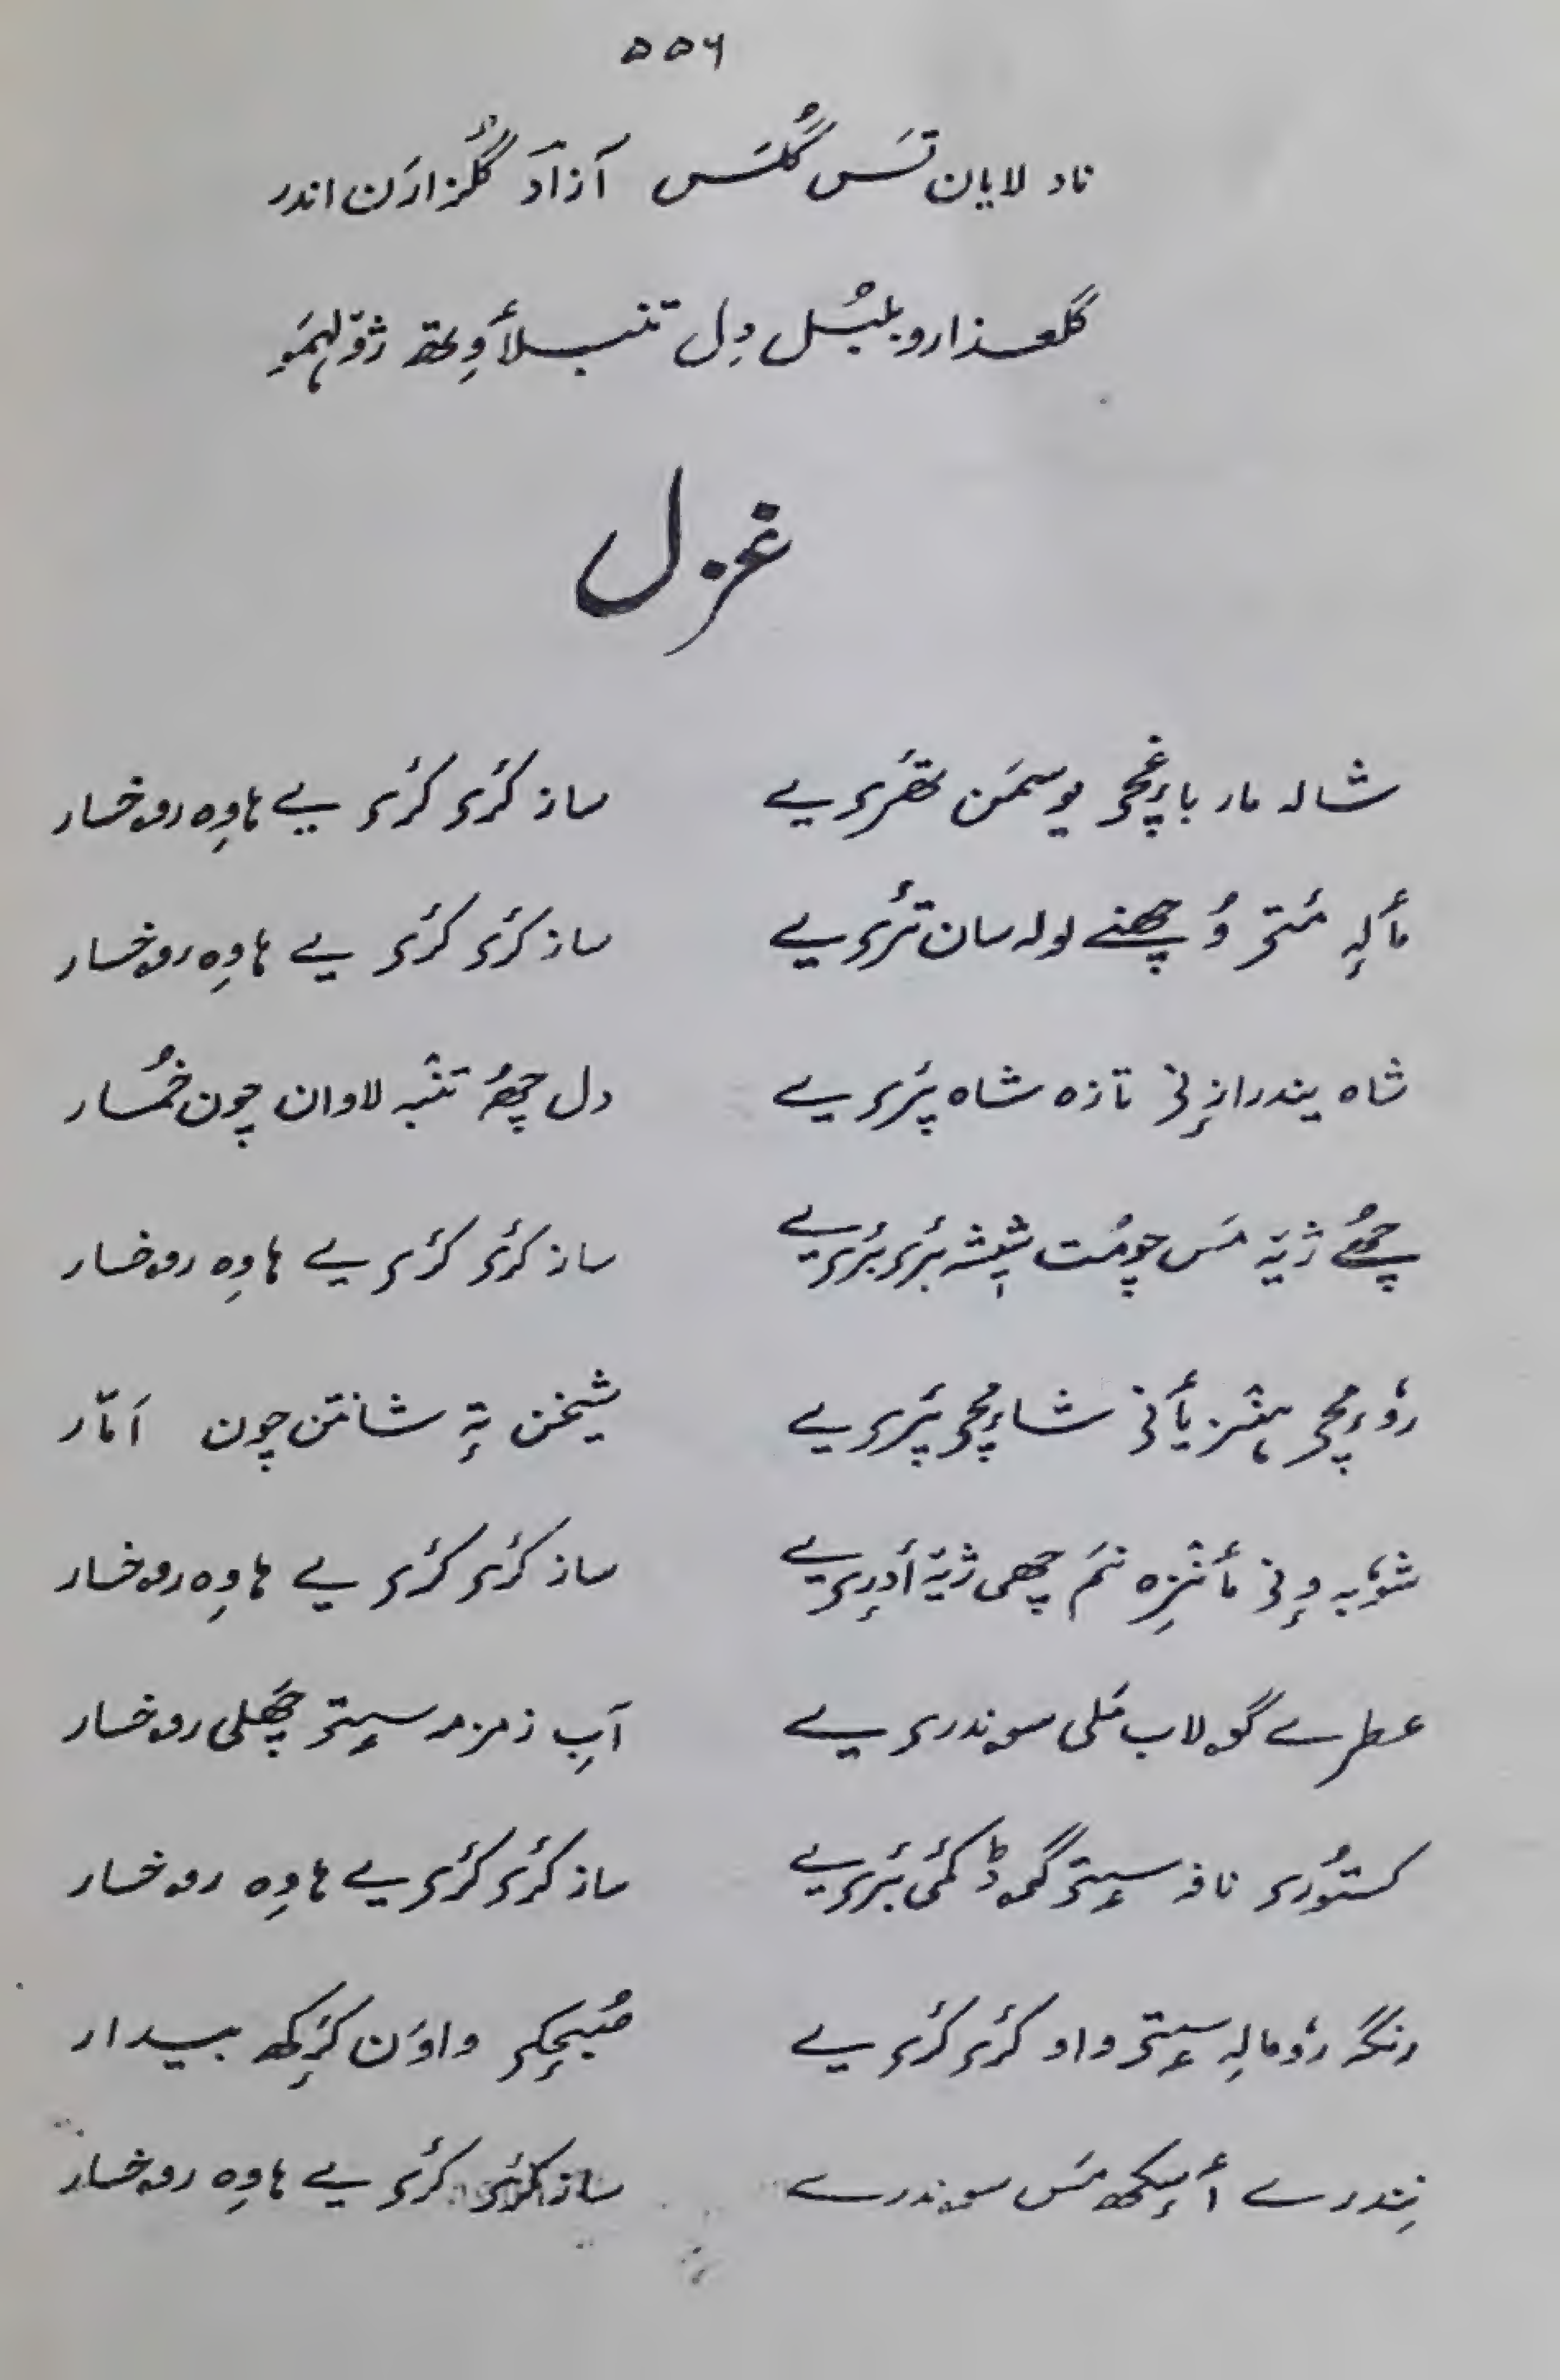 ۵۵۶
ناد لایان تَس گُلَس آزادَ گُلزارَن اندر
گلعذارو بلبُل دِل تنبلأوِتھ ژوٚلہمَو
غزل
شالہ مار باغٕچہِ یوسمَن تھَرِ یے ساز کٔرۍ کٔرۍ یے ہاوِہ رۄخسار
مٲلہِ مٔتۍ وُچھنے لولہ سان تٔرۍ یے ساز کٔرۍ کٔرۍ یے ہاوِہ رۄخسار
شاہ پندرازٕنۍ تازہ شاہ پَرۍ یے دل چھُ تنبہ لاوان چون خُمار
چھُے ژیہَ مَس چومُت شیشہ بٔرۍ بٔرۍ یے ساز کٔرۍ کٔرۍ یے ہاوِہ رۄخسار
شیخن تہٕ شانتن چون اَمار
شوٗبہِ وٕنۍ مٲنزِہ نَم چھی ژیہَ اَدرِ یے ساز کٔرۍ کٔرۍ یے ہاوِہ رۄخسار
عطرے گۄلاب مَلی سۄندرۍ یے آبِ زمزمہ سٟتۍ چھَلی رۄخسار
کستوٗرۍ نافہ سٟتۍ گۄڈ کٔمۍ بَرۍ یے ساز کٔرۍ کٔرۍ یے ہاوِہ رۄخسار
رنگہ روٗمالہِ سٟتۍ واو کٔرۍ کٔرۍ یے صُبحِکۍ واوَن کَرِکھ بیدار
نِندرے أسٕکھ مَس سۄندرے ساز کٔرۍ کٔرۍ یے ہاوِہ رۄخسار